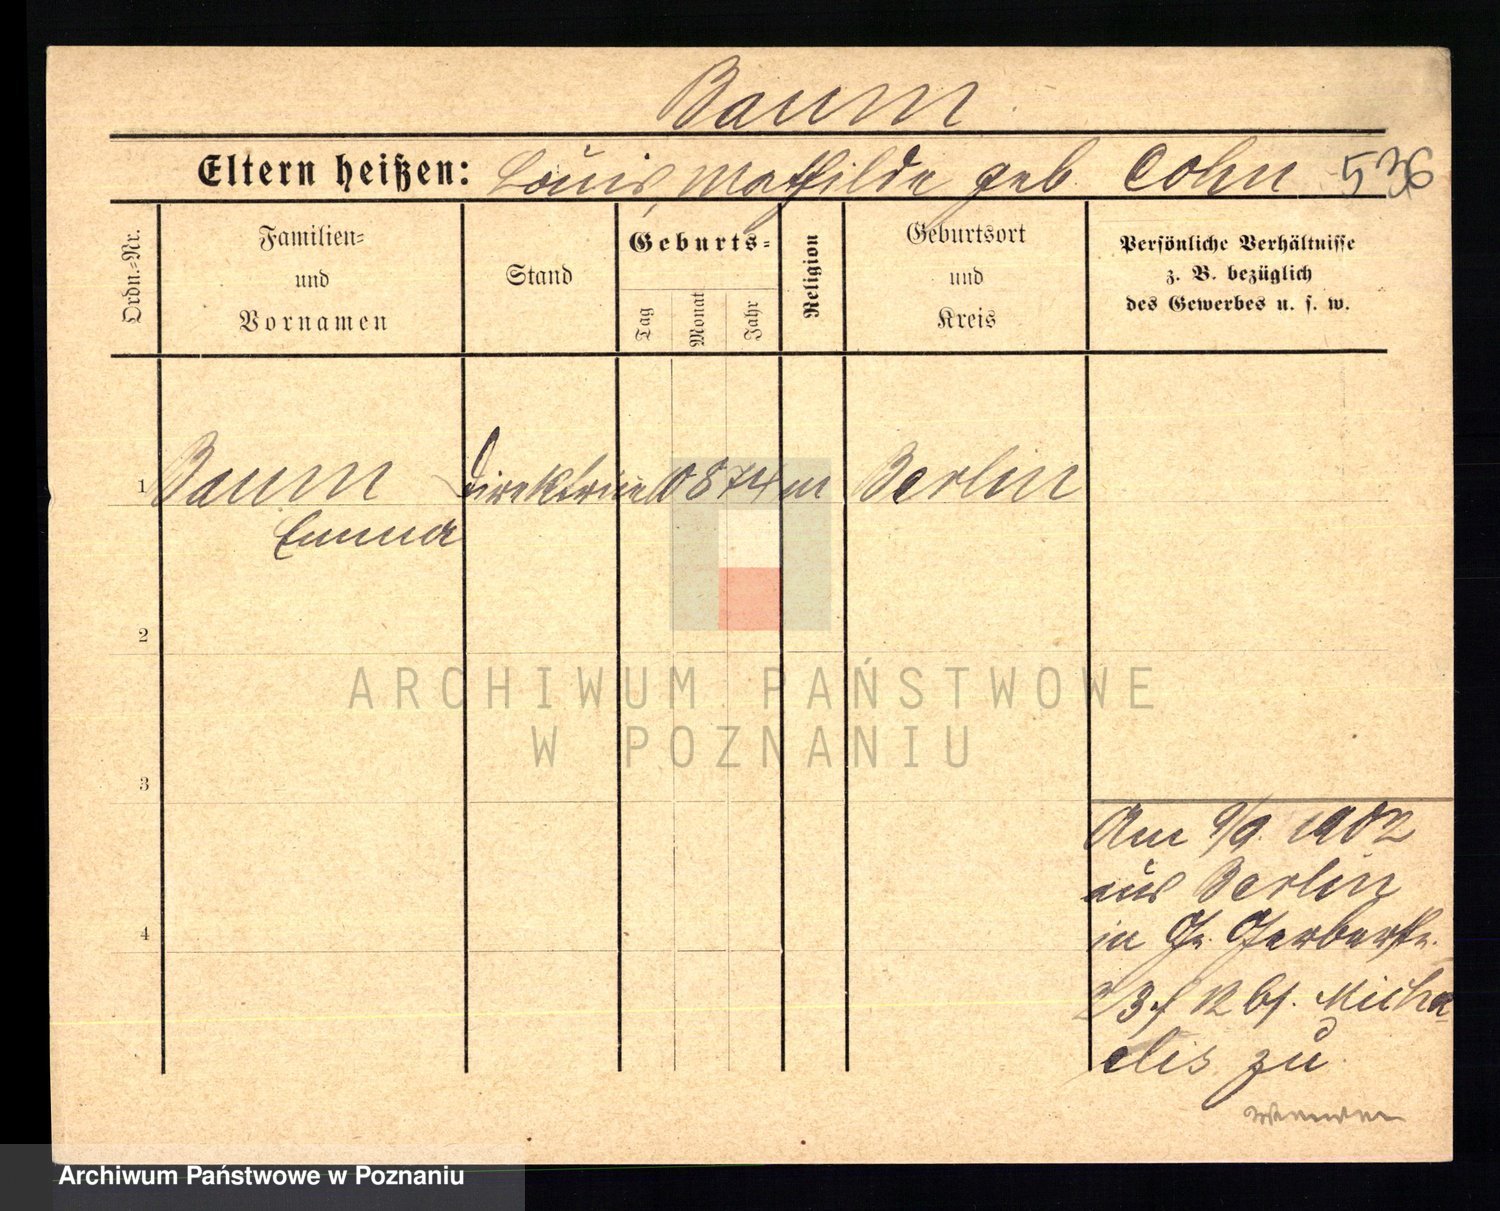 Baum
Eltern heißen: Louis, Mathilde geb. Cohn 536
Ordn.-Nr.
Familien-
und
Vornamen
Stand
Geburts-
Tag
Monat
Jahr
Religion
Geburtsort
und
Kreis
Persönliche Verhältnisse
z. B. bezüglich
des Gewerbes u. s. w.
1 Baum Direktrice 10 8 74 m Berlin
Emma
2
3
4
Am 9/9. 1902
aus Berlin
in Gr. Gerberstr.
23 bs. Micha-
elis zu
ARCHIWUM PAŃSTWOWE
W POZNANIU
Archiwum Państwowe w Poznaniu